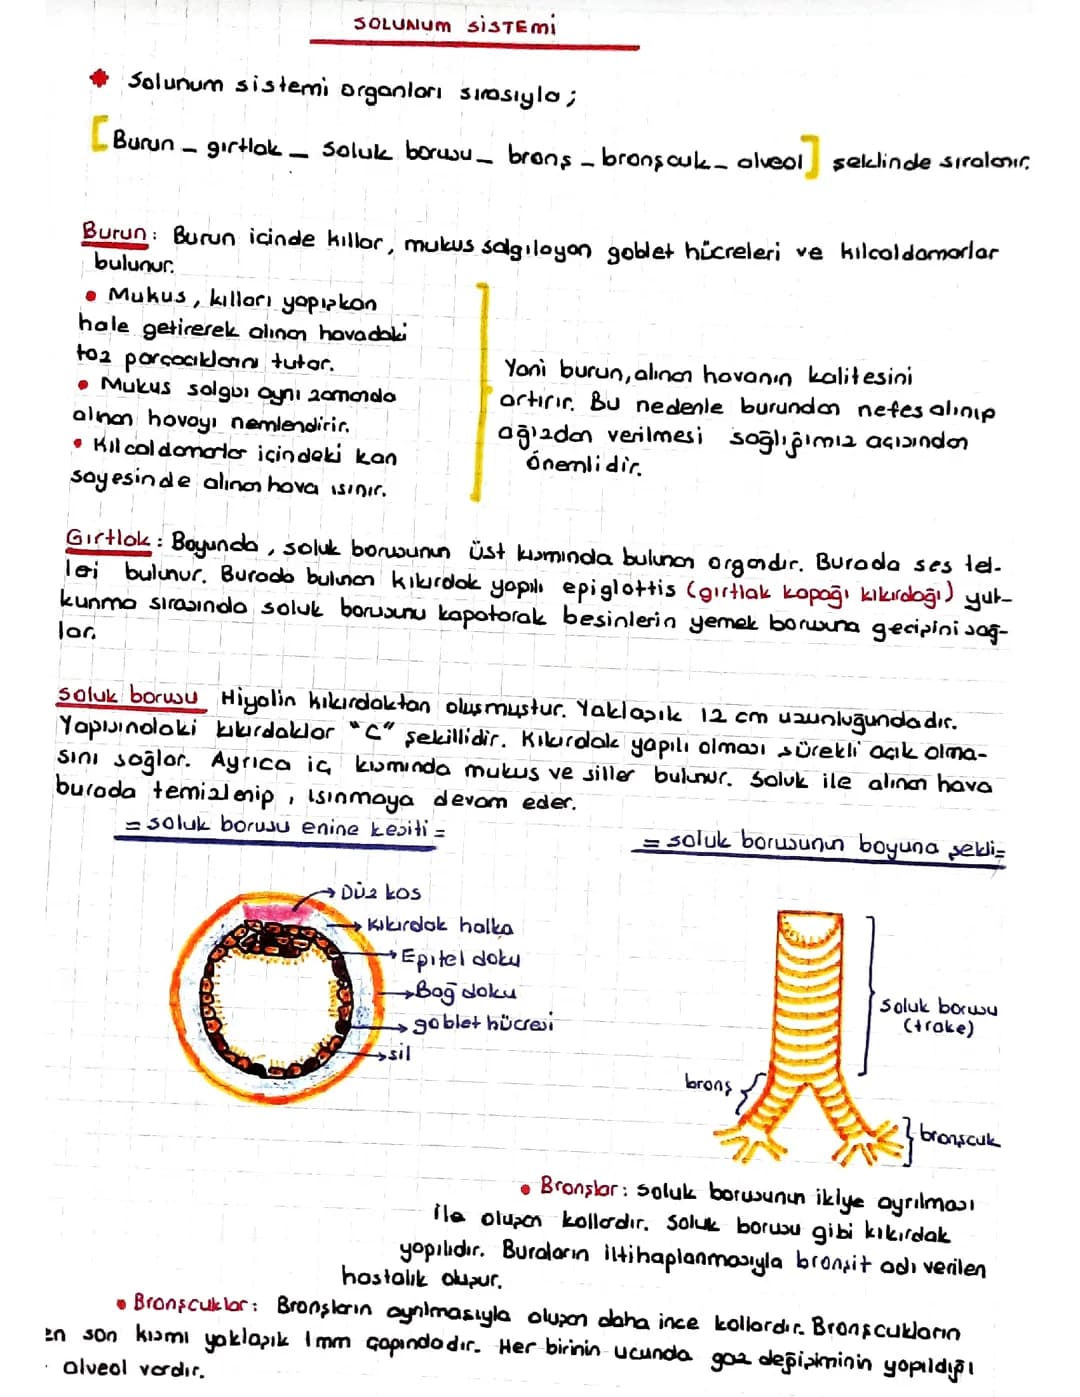 SOLUNUM SİSTEMİ
Solunum sistemi organları sırasıyla;
[Burun - gırtlak - soluk borusu - bronş - bronşcuk - alveol] şeklinde sıralanır.
Burun: Burun içinde kıllar, mukus salgılayan goblet hücreleri ve kılcaldamarlar
bulunur.
• Mukus, kılları yapışkan
hale getirerek alınan havadaki
toz parçacıklarını tutar.
• Mukus salgısı aynı zamanda
alınan havayı nemlendirir.
• Kılcaldamarlar içindeki kan
sayesinde alınan hava ısınır.
Yani burun, alınan havanın kalitesini
artırır. Bu nedenle burundan nefes alınıp
ağızdan verilmesi sağlığımız açısından
önemlidir.
Gırtlak: Boyunda, soluk borusunun üst kısmında bulunan organdır. Burada ses tel-
leri bulunur. Burada bulunan kıkırdak yapılı epiglottis (gırtlak kapağı kıkırdağı) yut-
kunma sırasında soluk borusunu kapatarak besinlerin yemek borusuna geçişini sağ-
lar.
soluk borusu Hiyalin kıkırdaktan oluşmuştur. Yaklaşık 12 cm uzunluğundadır.
Yapısındaki kıkırdaklar "C" şekillidir. Kıkırdak yapılı olması sürekli açık olma-
sını sağlar. Ayrıca iç kısmında mukus ve siller bulunur. Soluk ile alınan hava
burada temizlenip, ısınmaya devam eder.
= soluk borusu enine kesiti =
= soluk borusunun boyuna şekli =
Düz kas
Kıkırdak halka
Epitel doku
Bağ doku
goblet hücresi
sil
soluk borusu
(trake)
bronş
bronşcuk
• Bronşlar: soluk borusunun ikiye ayrılması
ile oluşan kollardır. Soluk borusu gibi kıkırdak
yapılıdır. Buraların iltihaplanmasıyla bronşit adı verilen
hastalık oluşur.
• Bronşcuklar: Bronşların ayrılmasıyla oluşan daha ince kollardır. Bronşcukların
en son kısmı yaklaşık 1mm çapındadır. Her birinin ucunda gaz değişiminin yapıldığı
alveol vardır.